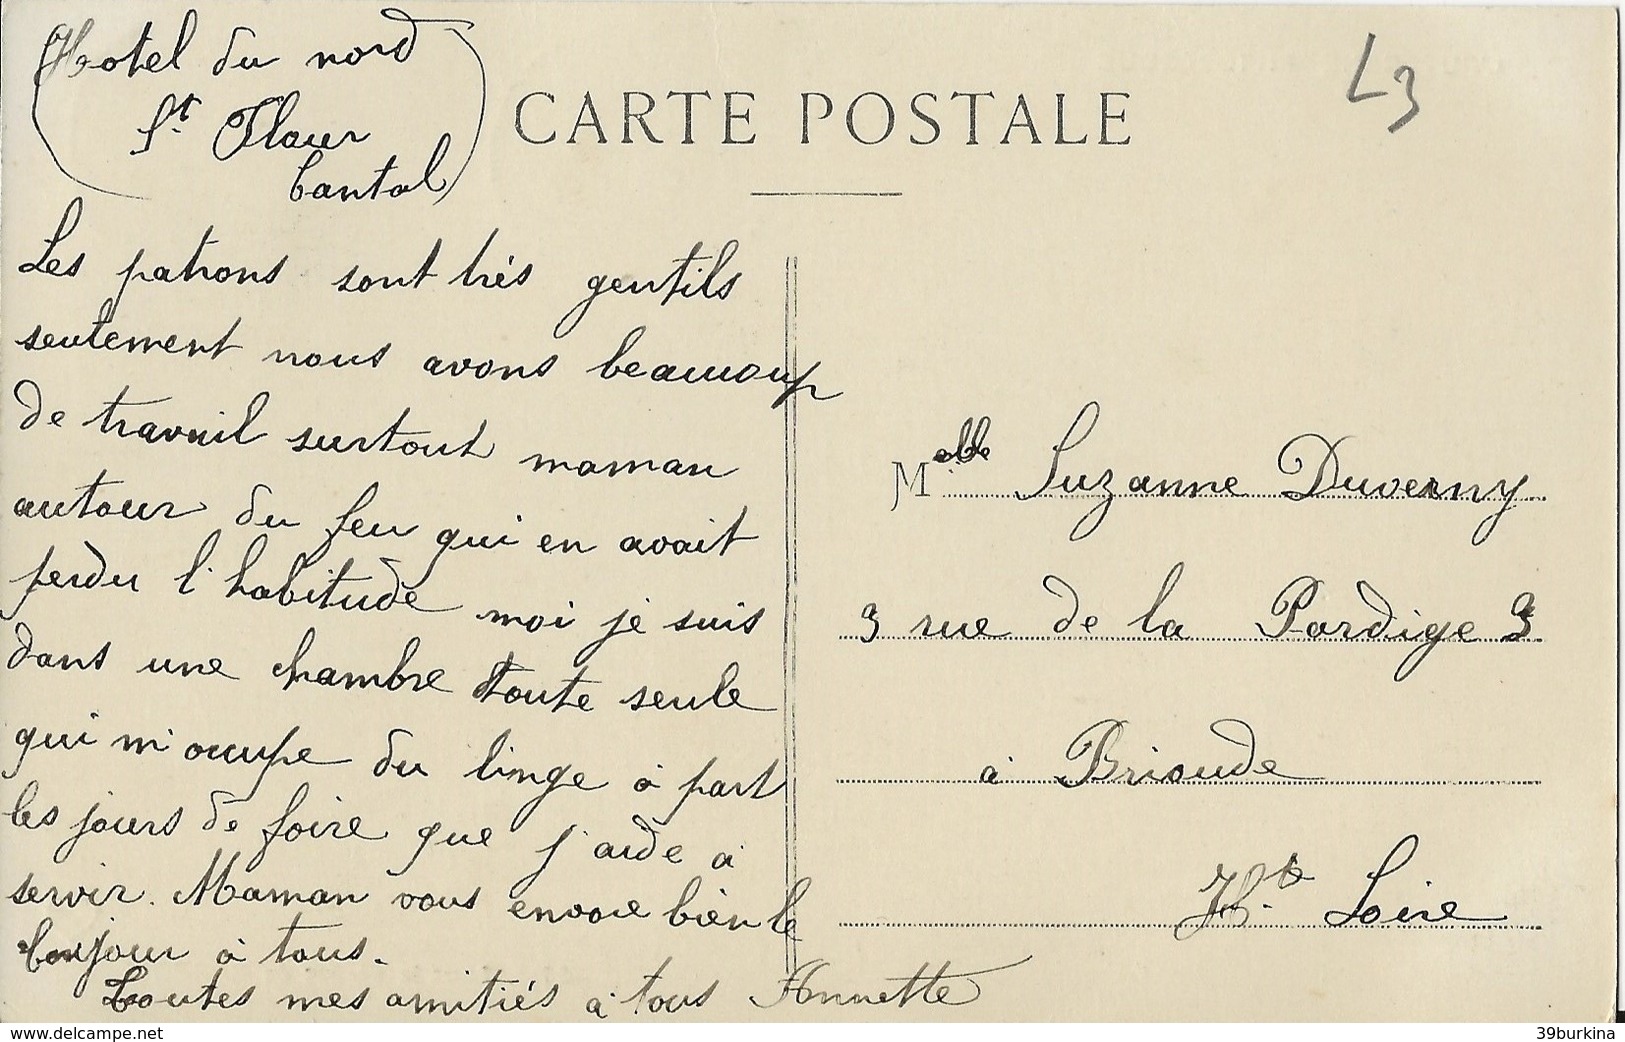 Hotel du nord
St Flour
Cantal
CARTE POSTALE
L3
Les patrons sont très gentils
seulement nous avons beaucoup
de travail surtout maman
autour du feu qui en avait
perdu l'habitude moi je suis
dans une chambre toute seule
qui m'occupe du linge à part
les jours de foire que j'aide à
servir. Maman vous envoie bien le
bonjour à tous.
Toutes mes amitiés à tous Annette
Melle Suzanne Duverny
3 rue de la Pardige 3
à Brioude
Hte Loire
39burkina
delcampe.net